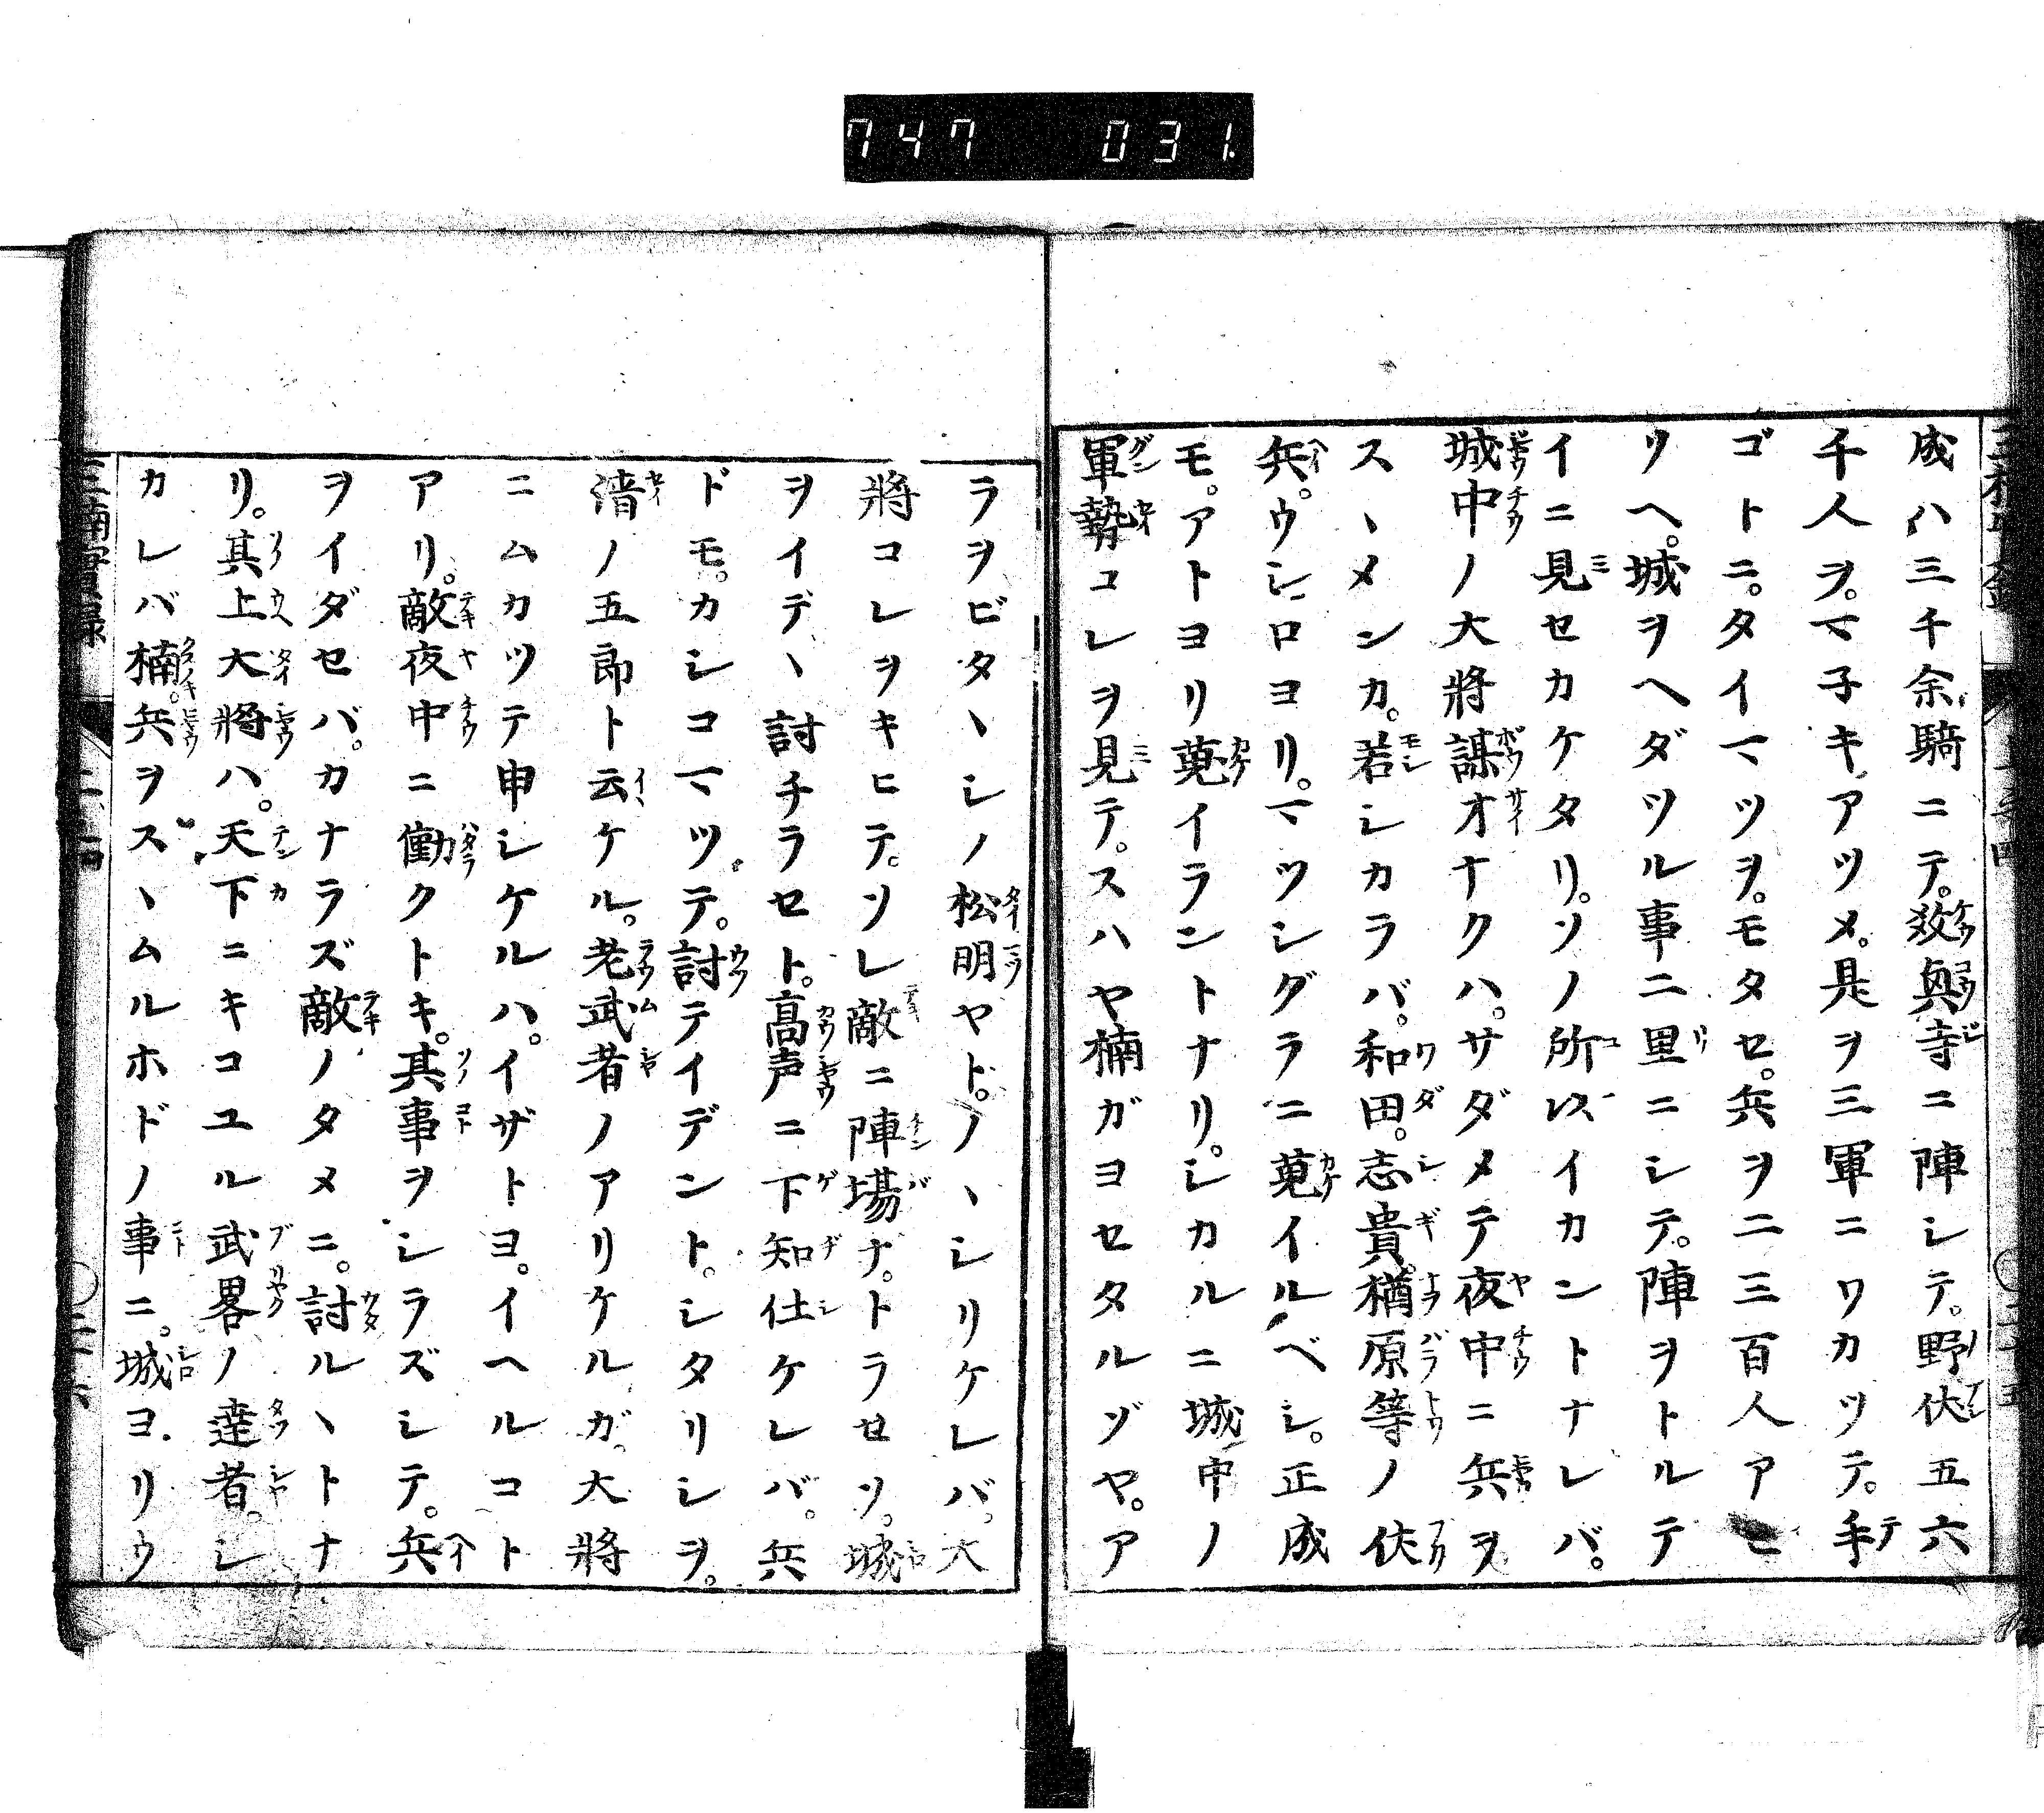 747 031.
成ハ三千余騎ニテ。敎興寺ニ陣シテ。野伏五六
千人ヲ。マ子キアツメ。是ヲ三軍ニワカツテ。手
ゴトニ。タイマツヲ。モタセ。兵ヲ二三百人アヒ
ソヘ。城ヲヘダツル事二里ニシテ。陣ヲトルテ
イニ見セカケタリ。ソノ所以イカントナレバ。
城中ノ大將謀才ナクハ。サダメテ夜中ニ兵ヲ
スヽメンカ。若シカラバ。和田。志貴。楢原等ノ伏
兵。ウシロヨリ。マツシグラニ蒐イルベシ。正成
モ。アトヨリ蒐イラントナリ。シカルニ城中ノ
軍勢コレヲ見テ。スハヤ楠ガヨセタルゾヤ。ア
ラヲビタヽシノ松明ヤト。ノヽシリケレバ。大
將コレヲキヒテ。ソレ敵ニ陣場ナ。トラセソ。城
ヲイデヽ討チラセト。高声ニ下知仕ケレバ。兵
ドモ。カシコマツテ。討テイデント。シタリシヲ。
淸ノ五郎ト云ケル。老武者ノアリケルガ。大將
ニムカツテ申シケルハ。イザトヨ。イヘルコト
アリ。敵夜中ニ働クトキ。其事ヲシラズシテ。兵
ヲイダセバ。カナラズ敵ノタメニ。討ルヽトナ
リ。其上大將ハ。天下ニキコユル武畧ノ達者。シ
カレバ楠。兵ヲスヽムルホドノ事ニ。城ヨリウ
三楠實録